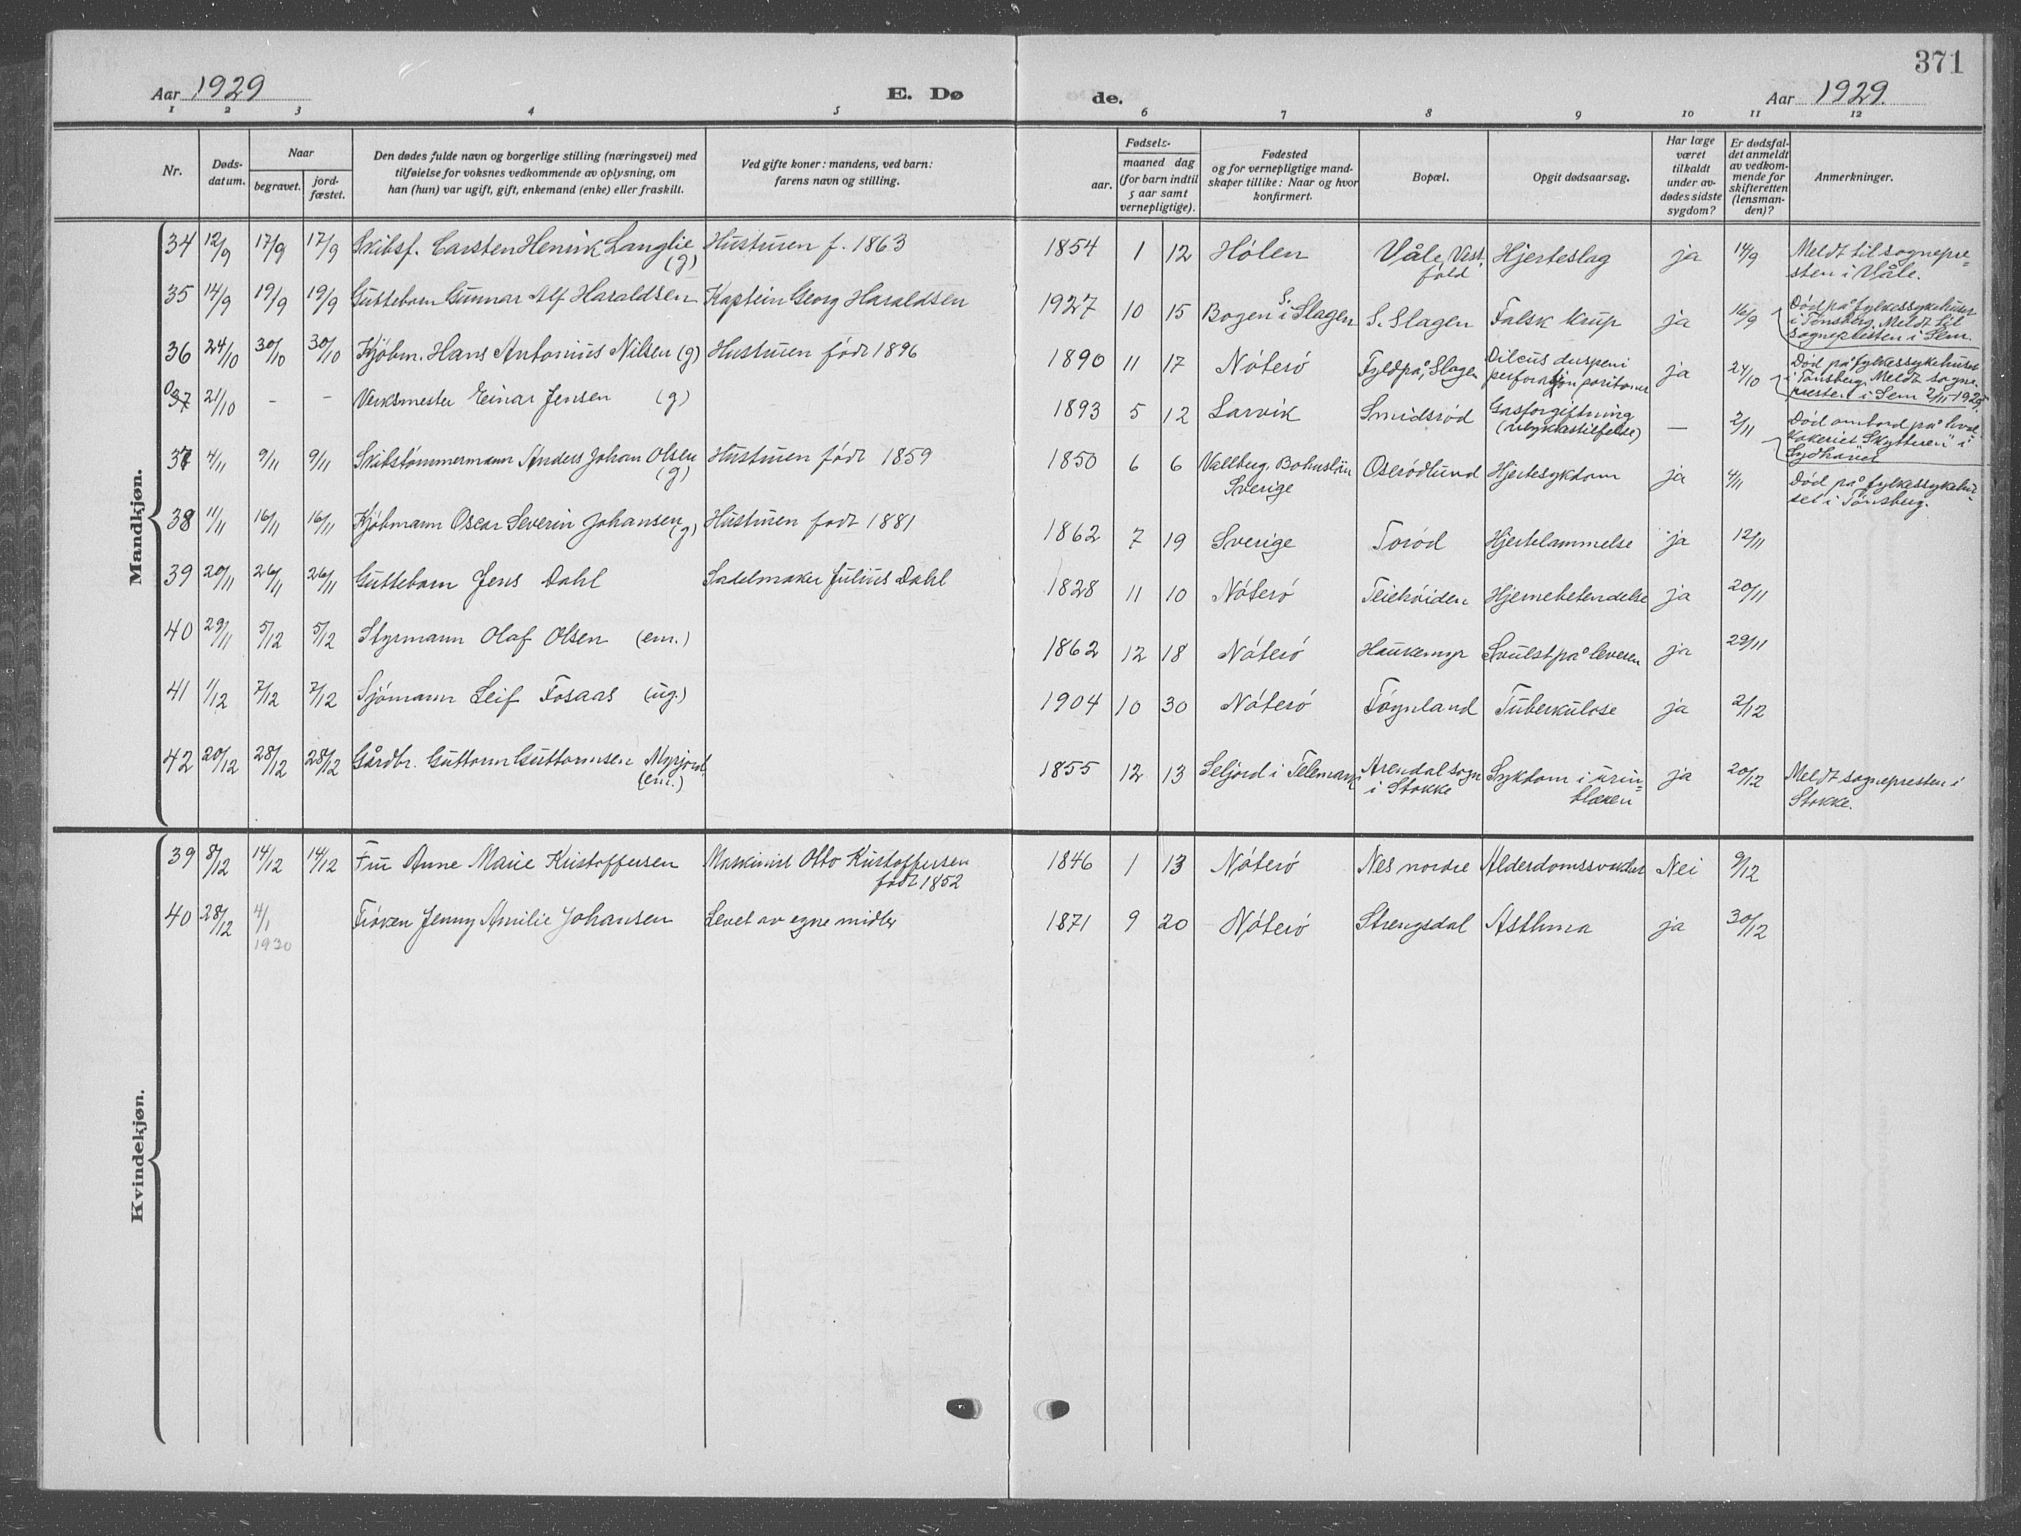 371
Aar 1929 E. Dø de. Aar 1929.
1 2 3 4 5 6 7 8 9 10 11 12
Nr.
Døds-
datum.
Naar
begravet.
jord-
fæstet.
Den dødes fulde navn og borgerlige stilling (næringsvei) med
tilføielse for voksnes vedkommende av oplysning, om
han (hun) var ugift, gift, enkemand (enke) eller fraskilt.
Ved gifte koner: mandens, ved barn:
farens navn og stilling.
Fødsels-
aar.
maaned dag
(for barn indtil
5 aar samt
vernepligtige).
Fødested
og for vernepligtige mand-
skaper tillike: Naar og hvor
konfirmert.
Bopæl.
Opgit dødsaarsag.
Har læge
været
tilkaldt
under av-
dødes sidste
sygdom?
Er dødsfal-
det anmeldt
av vedkom-
mende for
skifteretten
(lensman-
den)?
Anmerkninger.
Mandkjøn.
34 12/9 17/9 17/9 Skibsf. Carsten Henrik Langlie (g) Hustruen f. 1863 1854 1 12 Hølen Våle, Vest-
fold Hjerteslag ja 14/9 Meldt til sognepre=
sten i Våle.
35 14/9 19/9 19/9 Guttebarn Gunnar Alf Haraldsen Kaptein Georg Haraldsen 1927 10 15 Bogen i S. Slagen S. Slagen Falsk krup ja 16/9 Død på fylkessykehuset
i Tønsberg. Meldt til
sognepresten i Sem.
36 24/10 30/10 30/10 Kjøbm. Hans Antonius Nilsen (g) Hustruen født 1896 1890 11 17 Nøterø Fyldpå, Slagen ja 24/10 Død på fylkessykehuset
i Tønsberg. Meldt sogne-
presten i Sem 2/11-1929.
37 21/10 - - Verksmester Einar Jensen (g) 1893 5 12 Larvik Smidsrød Gasforgiftning
(ulykkestilfelde) — 2/11 Død ombord på hval-
kokeriet "Skytteren" i
Sydhavet
37 4/11 9/11 9/11 Skibstømmermann Anders Johan Olsen (g) Hustruen født 1859 1850 6 6 Vallberg, Bohuslän
Sverige Oserødlund Hjertesykdom ja 4/11 Død på fylkessykehu-
set i Tønsberg.
38 11/11 16/11 16/11 Kjøbmann Oscar Severin Johansen (g) Hustruen født 1881 1862 7 19 Sverige Torød Hjertelammelse ja 12/11
39 20/11 26/11 26/11 Guttebarn Jens Dahl Sadelmaker Julius Dahl 1828 11 10 Nøterø Teiehøiden Hjernebetendelse ja 20/11
40 29/11 5/12 5/12 Styrmann Olaf Olsen (em.) 1862 12 18 Nøterø Haukemyr Svulst på leveren ja 29/11
41 1/12 7/12 7/12 Sjømann Leif Fosaas (ug.) 1904 10 30 Nøterø Føynland Tuberkulose ja 2/12
42 20/12 28/12 28/12 Gårdbr. Guttorm Guttormsen Myrjord (em.) 1855 12 13 Seljord i Telemark Arendal sogn
i Stokke Sykdom i urin=
blæren ja 20/12 Meldt sognepresten i
Stokke.
Kvindekjøn.
39 8/12 14/12 14/12 Fru Anne Marie Kristoffersen Maskinist Otto Kristoffersen
født 1852 1846 1 13 Nøterø Nes nordre Alderdomssvakhet Nei 9/12
40 28/12 4/1
1930 Frøken Jenny Amilie Johansen Levet av egne midler 1871 9 20 Nøterø Strengsdal Asthma ja 30/12